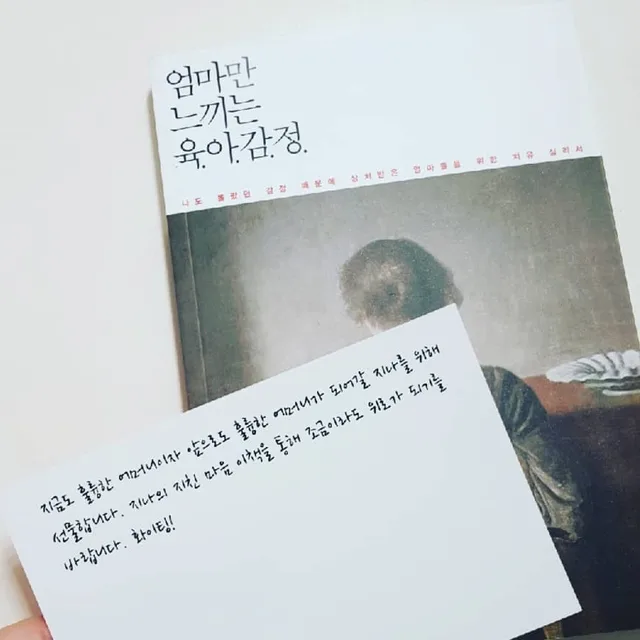 엄마만
느끼는
육.아.감.정.
나도 몰랐던 감정 때문에 상처받은 엄마들을 위한 치유 심리서
지금도 훌륭한 어머니이자 앞으로도 훌륭한 어머니가 되어갈 지나를 위해
선물합니다. 지나의 지친 마음 이책을 통해 조금이라도 위로가 되기를
바랍니다. 화이팅!